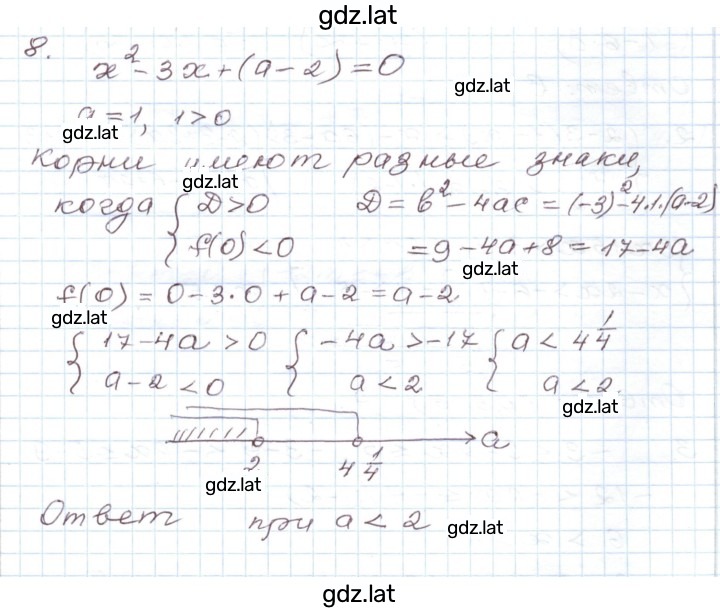 gdz.lat
8.
x² - 3x + (a - 2) = 0
gdz.lat
a = 1, 1 > 0
gdz.lat
Корни имеют разные знаки,
gdz.lat
когда { D > 0 D = b² - 4ac = (-3)² - 4·1·(a-2)
f(0) < 0 = 9 - 4a + 8 = 17 - 4a
gdz.lat
f(0) = 0 - 3·0 + a - 2 = a - 2
gdz.lat
{ 17 - 4a > 0 { -4a > -17 { a < 4 1/4
a - 2 < 0 a < 2 a < 2.
gdz.lat
a
2 4 1/4
gdz.lat
Ответ при a < 2 gdz.lat
gdz.lat